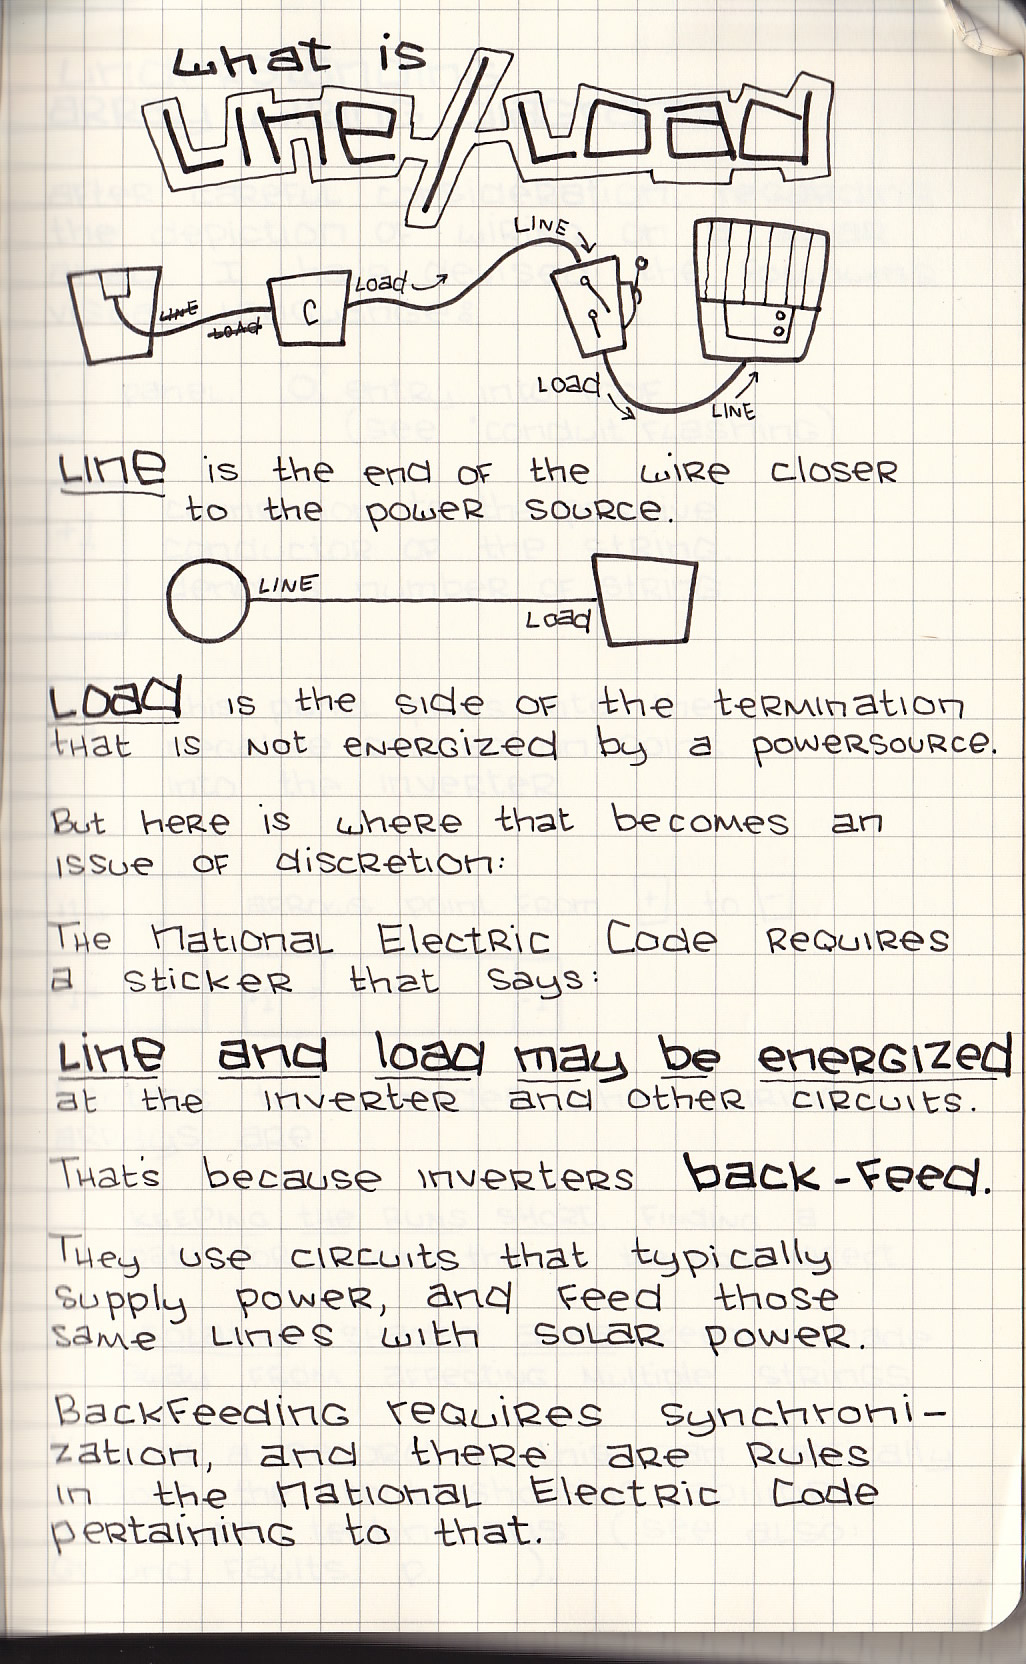 what is
Line/Load
LINE
LOAD
C
Load
LINE
Load
LINE
Line is the end of the wire closer
to the power source.
LINE
Load
Load is the side of the termination
that is not energized by a powersource.
But here is where that becomes an
issue of discretion:
The National Electric Code requires
a sticker that says:
Line and load may be energized
at the inverter and other circuits.
That's because inverters back-feed.
They use circuits that typically
supply power, and feed those
same lines with solar power.
Backfeeding requires synchroni-
zation, and there are rules
in the National Electric Code
pertaining to that.